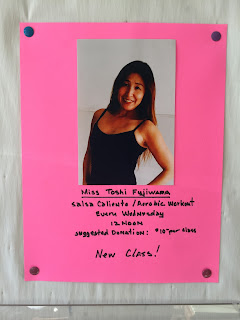 Miss Toshi Fujiwama
Salsa Caliente / Aerobic Workout
Every Wednesday
12 NOON
Suggested Donation: $10- per class
New Class!